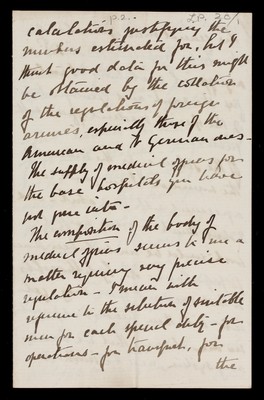 p.2. L.P. 30/1
calculations justifying the
numbers estimated for, but I
think good data for this might
be obtained by the collation
of the regulations of foreign
armies, especially those of the
American and German ones -
The supply of medical officers for
the base hospitals you have
not gone into -
The composition of the body of
medical officers seems to me a
matter requiring very precise
regulation - I mean with
reference to the selection of suitable
men for each special duty - for
operations - for transport, for
the